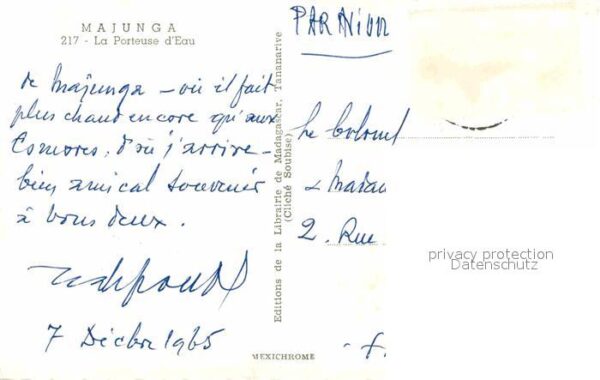 MAJUNGA
217 - La Porteuse d'Eau
de Majunga - où il fait
plus chaud encore qu'aux
Comores, d'où j'arrive -
bien amical souvenir
à vous deux.
7 Décbre 1965
Editions de la Librairie de Madagascar, Tananarive
(Cliché Soubise)
MEXICHROME
PAR AVION
Le Colonel
& Madam
2. Rue
privacy protection
Datenschutz